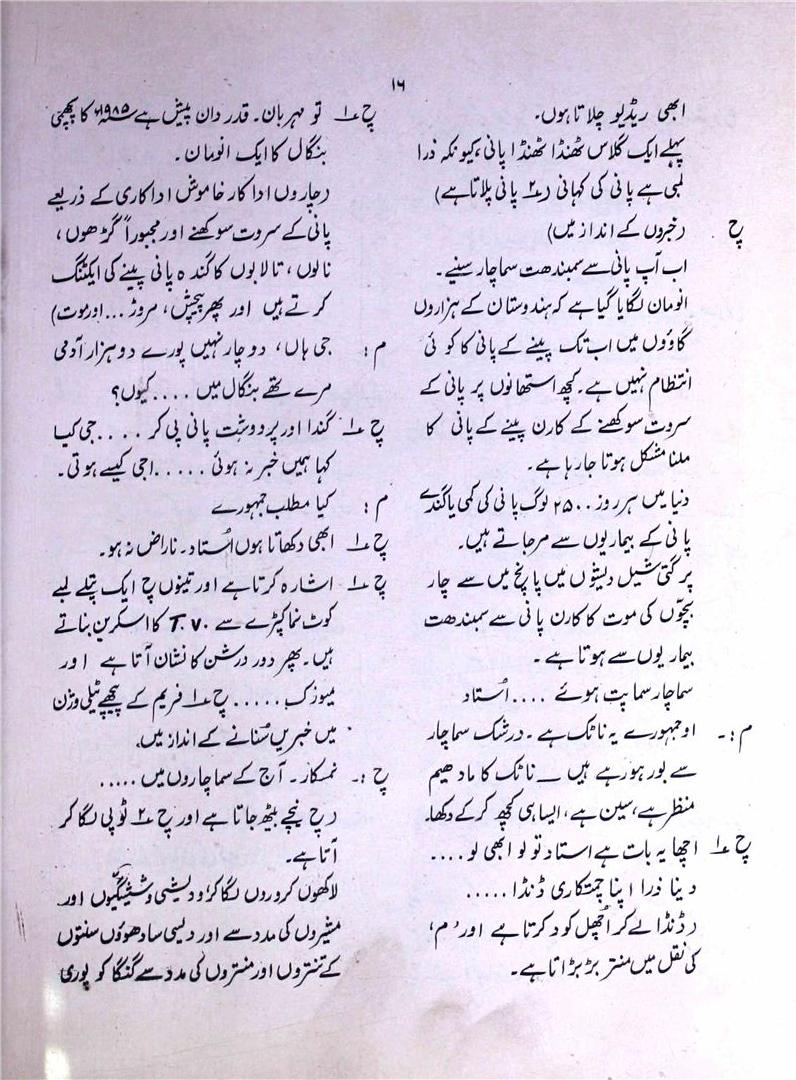 ۱۶
ابھی ریڈیو چلاتا ہوں۔
پہلے ایک گلاس ٹھنڈا ٹھنڈا پانی، کیونکہ ذرا
لمبی ہے پانی کی کہانی (ح۲ پانی پلاتا ہے)
ح (خبروں کے انداز میں)
اب آپ پانی سے سمبندھت سماچار سنیے۔
انومان لگایا گیا ہے کہ ہندوستان کے ہزاروں
گاؤوں میں اب تک پینے کے پانی کا کوئی
انتظام نہیں ہے۔ کچھ استھانوں پر پانی کے
سروت سوکھنے کے کارن پینے کے پانی کا
ملنا مشکل ہوتا جا رہا ہے۔
دنیا میں ہر روز ۲۵۰۰ لوگ پانی کی کمی یا گندے
پانی کے بیماریوں سے مر جاتے ہیں۔
پرگتی شیل دیشوں میں پانچ میں سے چار
بچوں کی موت کا کارن پانی سے سمبندھت
بیماریوں سے ہوتا ہے۔
سماچار سماپت ہوئے .... اُستاد
م:۔ او جمہورے یہ ناٹک ہے۔ درشک سماچار
سے بور ہو رہے ہیں ــ ناٹک کا مادھیم
منظر ہے، سین ہے، ایسا ہی کچھ کر کے دکھا۔
ح۱ اچھا یہ بات ہے استاد تو لو ابھی لو ....
دینا ذرا اپنا چمتکاری ڈنڈا .....
(ڈنڈا لے کر اُچھل کود کرتا ہے اور 'م'
کی نقل میں منتر بڑبڑاتا ہے۔
ح۱ تو مہربان۔ قدردان پیش ہے ۱۹۸۵ء کا پچھمی
بنگال کا ایک انومان۔
(چاروں اداکار خاموش اداکاری کے ذریعے
پانی کے سروت سوکھنے اور مجبوراً گڑھوں،
نالوں، تالابوں کا گندہ پانی پینے کی ایکٹنگ
کرتے ہیں اور پھر پیچش، مروڑ ... اور موت)
م: جی ہاں، دو چار نہیں پورے دو ہزار آدمی
مرے تھے بنگال میں .... کیوں؟
ح۱ گندا اور پردوشت پانی پی کر .... جی کیا
کہا ہمیں خبر نہ ہوئی ..... اجی کیسے ہوتی۔
م: کیا مطلب جمہورے
ح۱ ابھی دکھاتا ہوں اُستاد۔ ناراض نہ ہو۔
ح۱ اشارہ کرتا ہے اور تینوں ح ایک پتلے لمبے
کوٹ نما کپڑے سے T.V. کا اسکرین بناتے
ہیں۔ پھر دوردرشن کا نشان آتا ہے اور
میوزک ..... ح۱ فریم کے پیچھے ٹیلی وژن
میں خبریں سُنانے کے انداز میں۔
ح:۔ نمسکار۔ آج کے سماچاروں میں .....
(ح نیچے بیٹھ جاتا ہے اور ح۲ ٹوپی لگا کر
آتا ہے۔
لاکھوں کروروں لگا کر ودیشی وشیشگیوں اور
مشیروں کی مدد سے اور دیسی سادھوؤں سنتوں
کے تنتروں اور منتروں کی مدد سے گنگا کو پوری